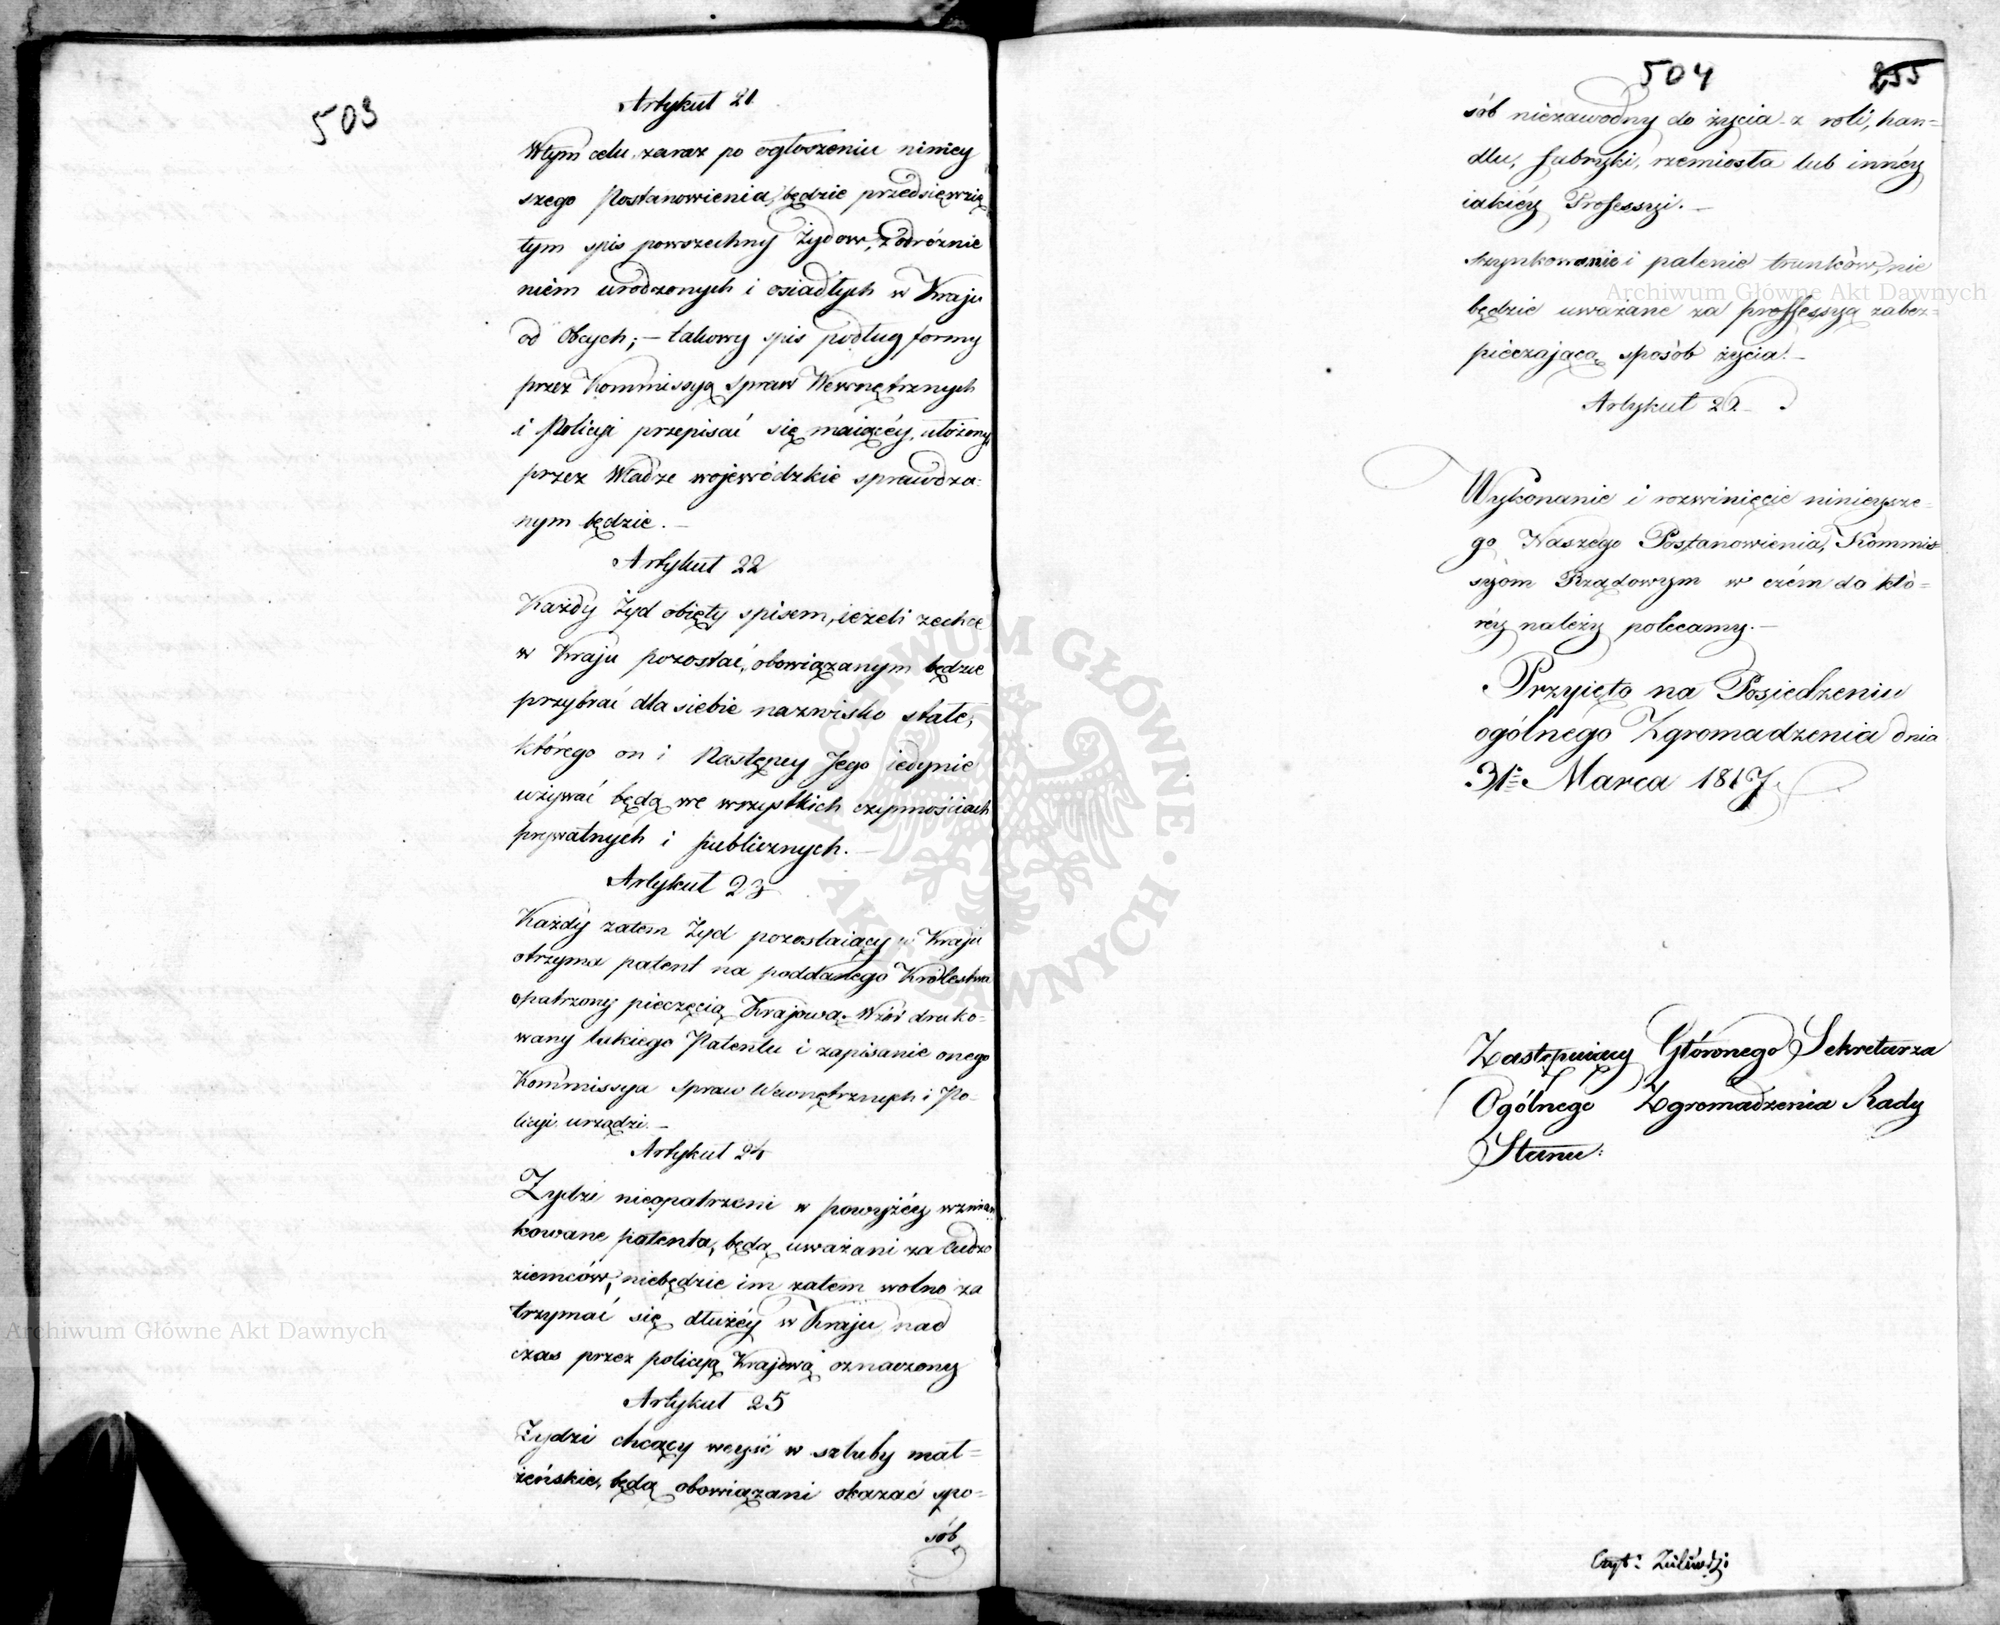 503
Artykuł 21
W tym celu, zaraz po ogłoszeniu niniey
szego Postanowienia, będzie przedsięwzię
tym spis powszechny Żydow, z odróżnie
niem urodzonych i osiadłych w Kraju
od Obcych; — takowy spis podług formy
przez Kommissyą Spraw Wewnętrznych
i Policyi przepisać się maiącéy, ułożony
przez Władze wojewódzkie sprawdza-
nym będzie. —
Artykuł 22
Każdy Żyd obięty spisem, ieżeli zechce
w Kraju pozostać, obowiązanym będzie
przybrać dla siebie nazwisko stałe,
którego on i Następcy Jego iedynie
używać będą we wszystkich czynnościach
prywatnych i publicznych. —
Artykuł 23
Każdy zatem Żyd pozostaiący w Kraju
otrzyma patent na poddanego Królestwa
opatrzony pieczęcią Krajową. Wzór druko-
wany takiego Patentu i zapisanie onego
Kommissya Spraw Wewnętrznych i Po-
licyi urządzi. —
Artykuł 24
Żydzi nieopatrzeni w powyżéy wzmian
kowane patenta, będą uważani za Cudzo
ziemców, niebędzie im zatem wolno za
trzymać się dłużéy w Kraju nad
czas przez policyą Krajową oznaczony
Artykuł 25
Żydzi chcący weyść w szluby mał=
żeńskie, będą obowiązani okazać spo=
sób
504 255
sób niezawodny do życia z roli, han=
dlu, fabryki, rzemiosła lub innéy
iakiéy Professyi. —
Szynkowanie i palenie trunków, nie
będzie uważane za proffessyą zabez=
pieczającą sposób życia. —
Artykuł 26
Wykonanie i rozwinięcie ninieysze=
go Naszego Postanowienia, Kommis=
syom Rządowym w czém do któ=
réy należy polecamy. —
Przyięto na Posiedzeniu
ogólnégo Zgromadzenia dnia
31. Marca 1817.
Zastępuiący Głównego Sekretarza
Ogólnego Zgromadzenia Rady
Stanu:
Czyt:
Archiwum Główne Akt Dawnych
Archiwum Główne Akt Dawnych
ARCHIWUM GŁÓWNE AKT DAWNYCH